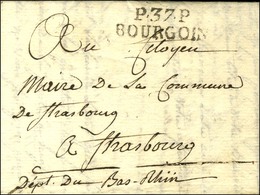 P.37.P
BOURGOIN
Au Citoyen
Maire De La Commune
De Strasbourg
A Strasbourg
Dépt. Du Bas-Rhin